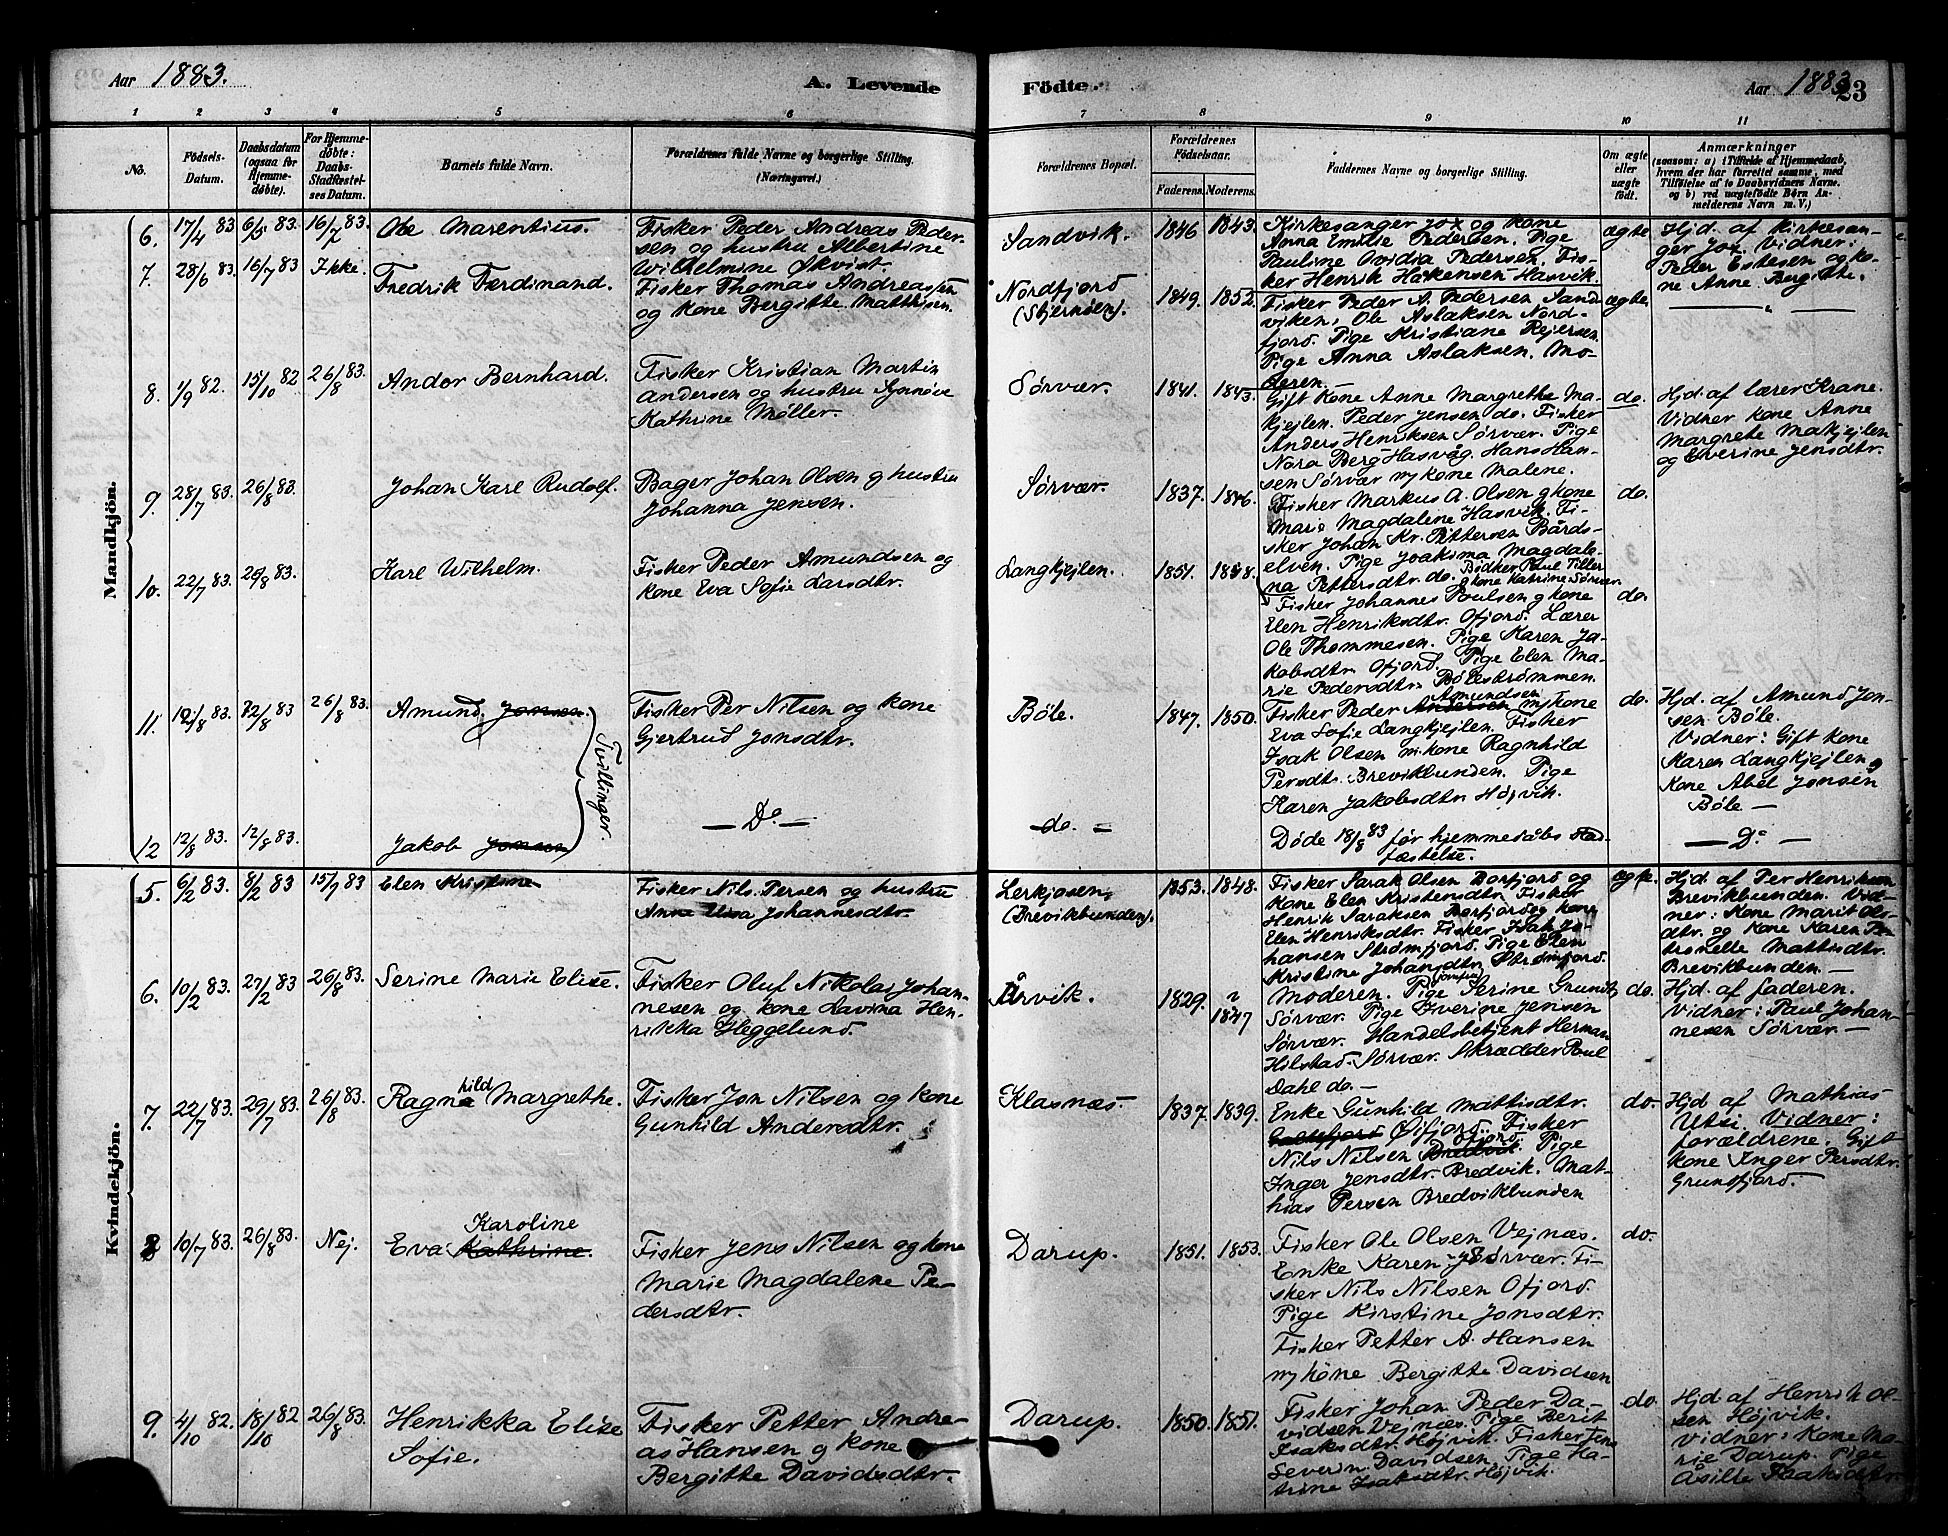 Aar 1883.
A. Levende
Födte.
Aar 1883
23
1 2 3 4 5 6 7 8 9 10 11
No.
Födsels-
Datum.
Daabsdatum
(ogsaa for
Hjemme-
døbte).
For Hjemme-
døbte:
Daabs-
Stadfæstel-
ses Datum.
Barnets fulde Navn.
Forældrenes fulde Navne og borgerlige Stilling.
(Næringsvei.)
Forældrenes Bopæl.
Forældrenes
Födselsaar.
Faderens. Moderens.
Faddernes Navne og borgerlige Stilling.
Om ægte
eller
uægte
født.
Anmærkninger
(saasom: a) i Tilfælde af Hjemmedaab,
hvem der har forrettet samme, med
Tilföielse af to Daabsvidners Navne.
og b) ved uægtefödte Börn An-
melderens Navn m. V.)
Mandkjön.
6. 17/4 83 6/5 83. 16/7 83. Ole Marentius.
Fisker Peder Andreas Peder-
sen og hustru Albertine
Wilhelmine Økvist.
Sandvik. 1846 1843.
Kirkesanger Jox og kone
Anna Emilie Pedersen. Pige
Pauline Ovidia Pedersen. Fis-
ker Henrik Hakensen Hasvik.
ægte
Hjd. af Kirkesan-
ger Jox Vidner:
Peder Estesen og ko-
ne Anne Bergitte.
7. 28/6 83. 16/7 83 Ikke. Fredrik Ferdinand.
Fisker Thomas Andreassen
og kone Bergitte Mathisen.
Nordfjord
(Stjernöen).
1849. 1852.
Fisker Peder A. Pedersen Sand-
viken, Ole Aslaksen Nord-
fjord. Pige Kristiane Rejersen
Pige Anna Aslaksen. Mo-
deren.
ægte.
— " —
8. 1/9 82. 15/10 82 26/8 83. Andor Bernhard.
Fisker Kristian Martin
Andersen og hustru Synnöve
Kathrine Møller.
Sørvær. 1841. 1843.
Gift Kone Anne Margrethe Ma-
kjejlen. Peder Jensen do. Fisker
Anders Henriksen Sørvær. Pige
Nora Berg Hasvåg. Hans Han-
sen Sørvær m/kone Malene.
do.
Hjd. af lærer Krane.
Vidner kone Anne
Margrete Makjejlen
og Everine Jensdtr.
9. 28/7 83. 26/8 83. Johan Karl Rudolf.
Bager Johan Olsen g hustru
Johanna Jensen.
Sørvær. 1837. 1846.
Fisker Markus A. Olsen g kone
Marie Magdalene Hasvik. Fi-
sker Johan Kr. Pettersen Bårds-
elven. Pige Joakima Magdale-
na Pettersdtr. do. Bödker Paul Tiller
g kone Katrine Sørvær.
do.
10. 22/7 83. 26/8 83. Karl Wilhelm.
Fisker Peder Amundsen og
kone Eva Sofie Larsdtr.
Langkjejlen. 1851. 1848.
Fisker Johannes Poulsen g kone
Elen Henriksdtr. Ofjord. Lærer
Ole Thommesen. Pige Karen Ja-
kobsdtr. Ofjord. Pige Elen Ma-
rie Pedersdtr. Bölestrømmen.
do.
11. 12/8 83. 12/8 83 26/8 83. Amund Jonsen
Fisker Per Nilsen og kone
Gjertrud Jonsdtr.
Tvillinger.
Bøle. 1847. 1850.
Amundsen
Fisker Peder Andersen m/kone
Eva Sofie Langkjejlen. Fisker
Isak Olsen m/kone Ragnhild
Persdtr. Brevikbunden. Pige
Karen Jakobsdtr Højvik.
do.
Hjd. af Amund Jon-
sen Bøle.
Vidner: Gift kone
Karen Langkjejlen g
Kone Abel Jonsen
Böle —
12 12/8 83. 12/8 83. Jakob Jonsen
— Do — — do. —
Døde 18/8 83 før hjemmedåbs stad-
fæstelse.
— Do —
Kvindekjön.
5. 6/2 83. 8/2 83 15/7 83 Elen Kristine
Fisker Nils Persen og hustru
Anne Johannesdtr.
Lerkjosen
(Brevikbunden).
1853. 1848.
Fisker Sarak Olsen Borfjord og
Kone Elen Kristensdtr. Fisker
Henrik Saraksen Borfjord og kone
Elen Henriksdtr. Fisker Isak Jo-
hansen Strømfjord. Pige Elen
Kristine Johansdtr Strømfjord.
ægte.
Hjd. af Per Henriksen
Brevikbunden. Vid-
ner: Kone Marit Ols-
dtr. og kone Karen Pe-
tronelle Mattisdtr.
Brevikbunden —
6. 10/2 83. 27/2 83 26/8 83. Serine Marie Elise.
Fisker Oluf Nikolai Johan-
nesen og kone Lavina Hen-
rikka Heggelund.
Årvik. 1829. 1847
(jomfru)
Moderen. Pige Serine Grunitz
Sørvær. Pige Iverine Jensen
Sørvær. Handelsbetjent Herman
Hilstad Sørvær. Skrædder Paul
Dahl do. —
do.
Hjd. af faderen.
Vidner: Paul Johan-
nesen Sørvær. —
7. 22/7 83. 29/7 83. 26/8 83. Ragnahild Margrethe.
Fisker Jon Nilsen og kone
Gunhild Andersdtr.
Klasnæs. 1837. 1839.
Enke Gunhild Mattisdtr.
Øjfjord. Fisker
Ofjord
Nils Nilsen Bredvik. Pige
Inger Jensdtr. Bredvik. Mat-
hias Persen Bredvikbunden
do.
Hjd af Mathias
Utsi. Vidner:
forældrene. Gift
kone Inger Persdtr.
Grundfjord.
8 10/7 83. 26/8 83. Nej.
Karoline
Eva Kathrine.
Fisker Jens Nilsen og kone
Marie Magdalene Pe-
dersdtr.
Darup. 1851. 1853.
Fisker Ole Olsen Vejnæs.
Enke Karen Sørvær. Fi-
sker Nils Nilsen Ofjord.
Pige Kirstine Jonsdtr.
Fisker Petter A. Hansen
m/kone Bergitte Davidsen
do.
9. 4/10 82. 18/10 82 26/8 83. Henrikka Elise
Sofie.
Fisker Petter Andre-
as Hansen g kone
Bergitte Davidsdtr.
Darup. 1850. 1851.
Fisker Johan Peder Da-
vidsen Vejnæs. Pige Berit
Isaksdtr. Højvik. Fisker Jens
Severin Davidsen. Pige Ka-
trine Isaksdtr. Højvik.
do.
Hjd af Henrik Ol-
sen Højvik.
Vidner: Kone Ma-
rie Darup. Pige
Åsille Isaksdtr